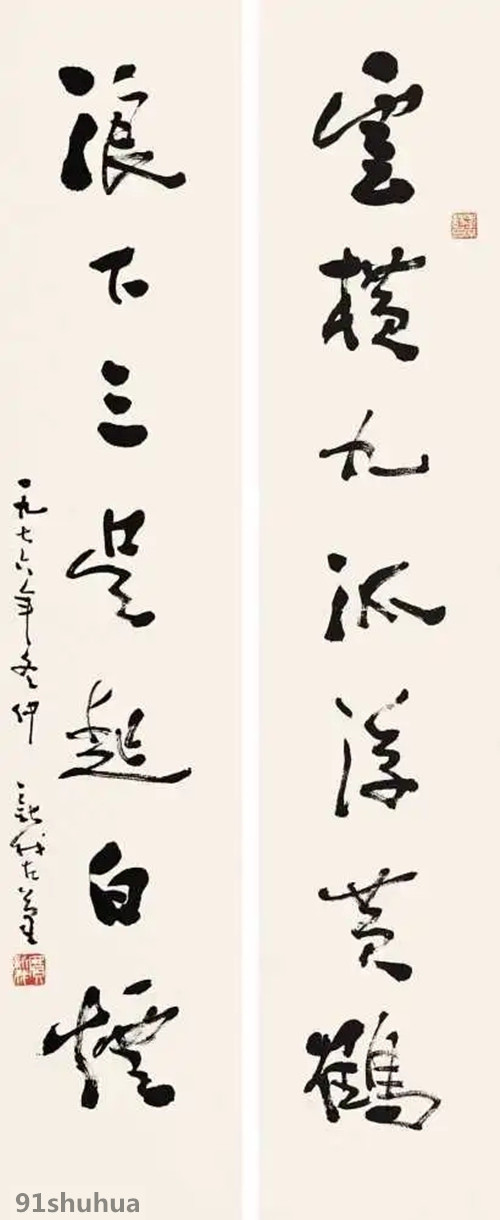 雲橫九派浮黃鶴
浪下三吳起白煙
一九七六年冬仲 新我左筆
91shuhua